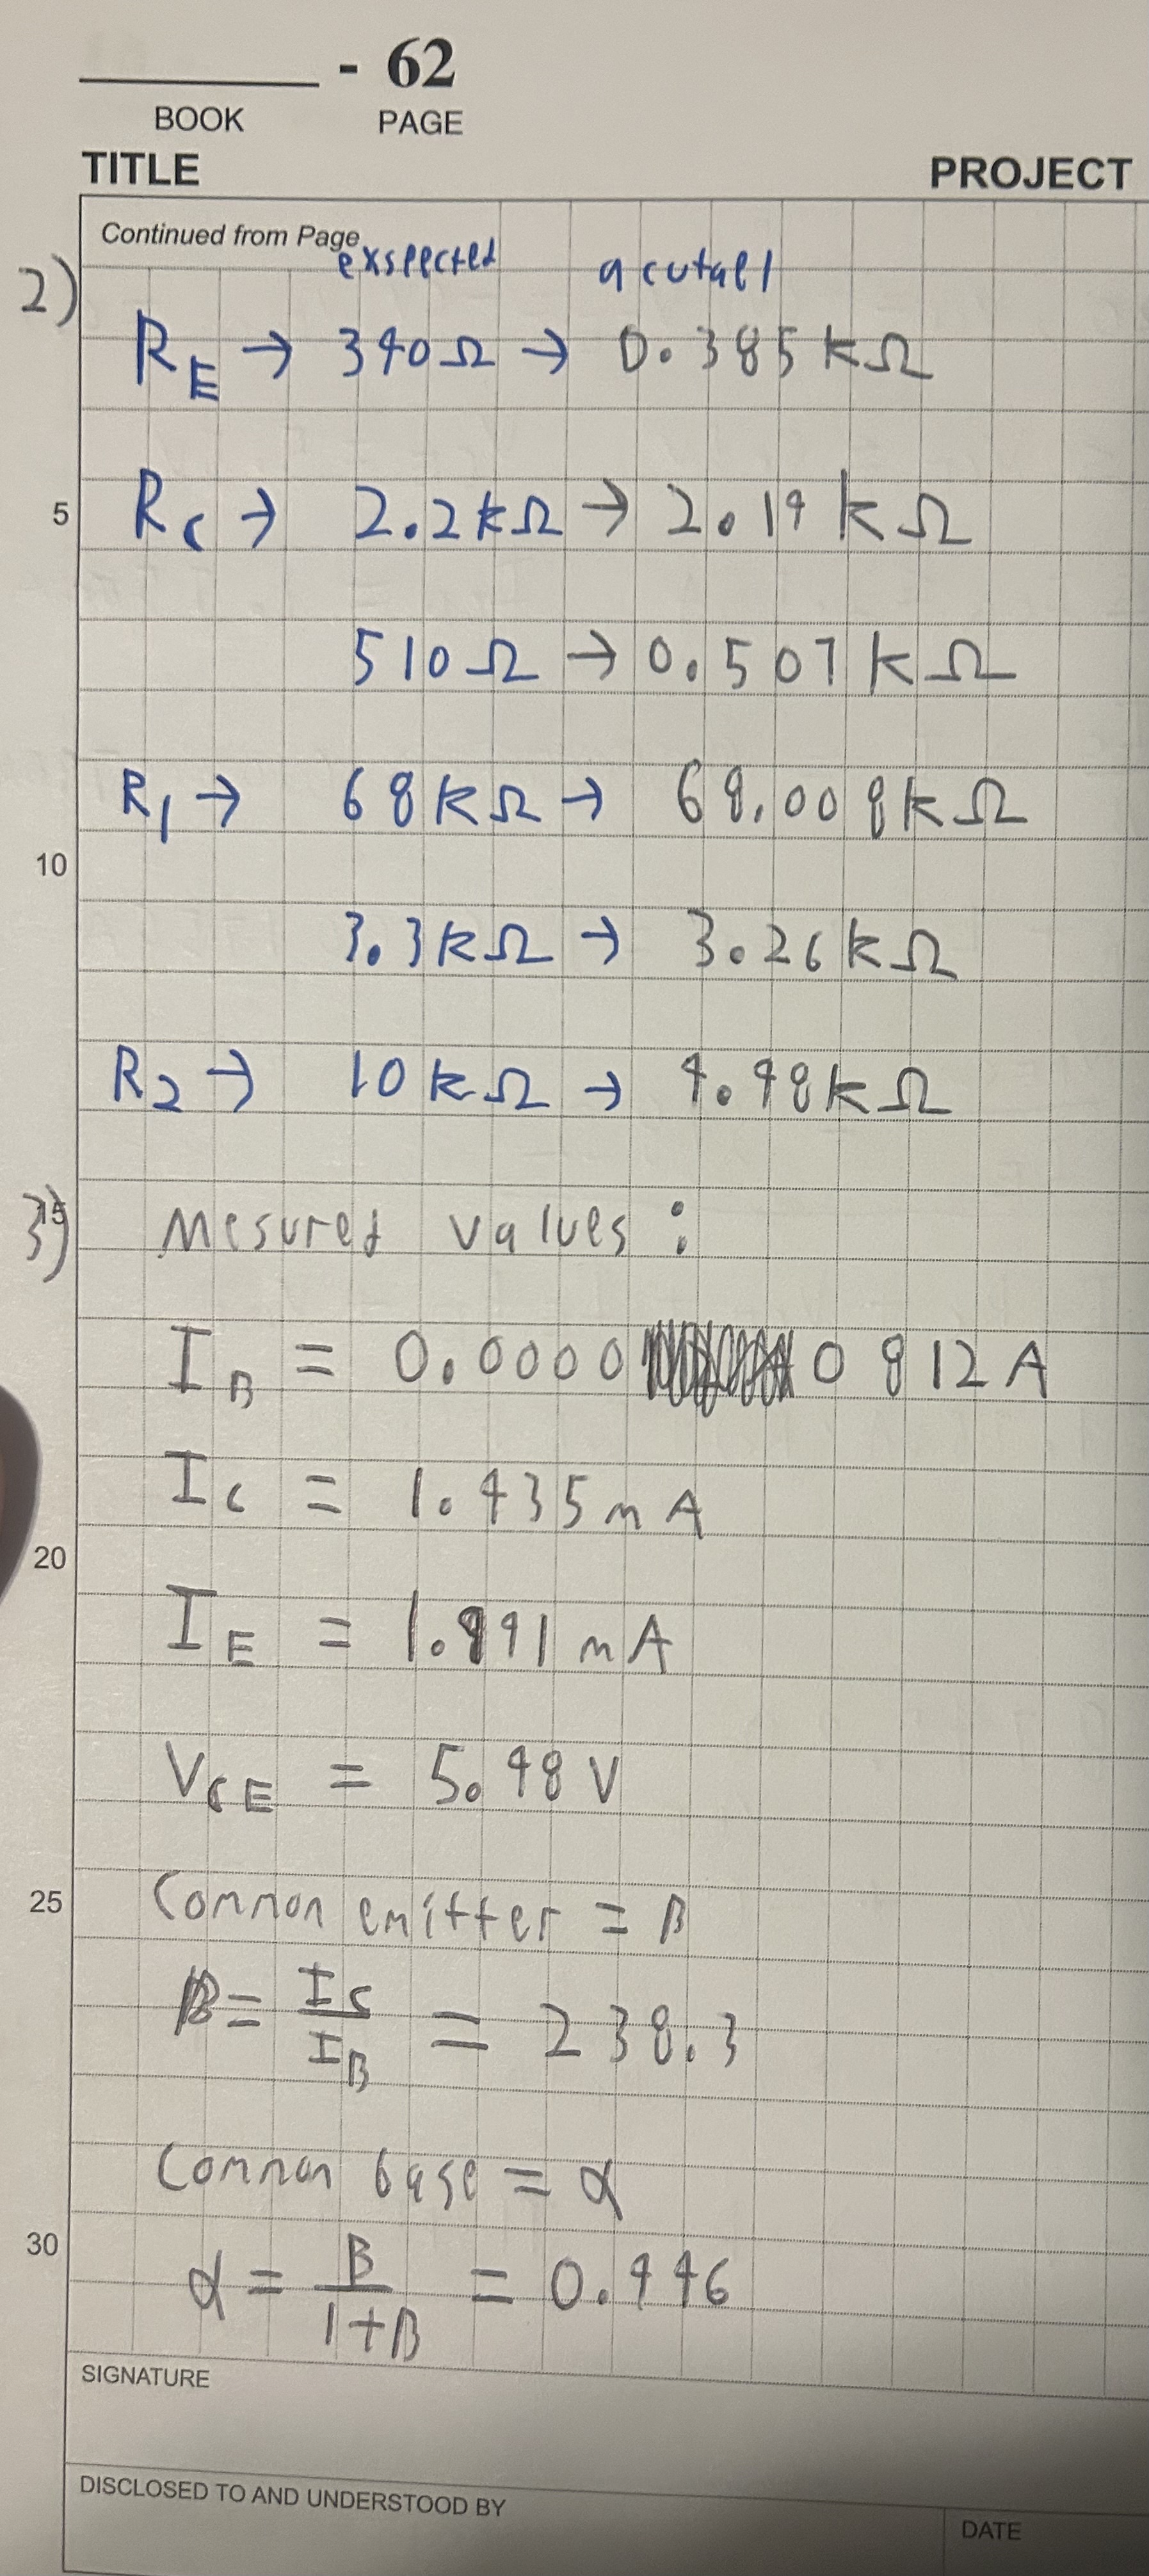 - 62
BOOK PAGE
TITLE PROJECT
Continued from Page
exspected acutael
2)
R_E → 390Ω → 0.385kΩ
5 R_C → 2.2kΩ → 2.19kΩ
510Ω → 0.507kΩ
R_1 → 68kΩ → 68.008kΩ
10
3.3kΩ → 3.26kΩ
R_2 → 10kΩ → 9.98kΩ
15
3) Mesured values :
I_B = 0.0000 0812A
I_C = 1.935mA
20
I_E = 1.991mA
V_CE = 5.98V
25 Common emitter = β
β = I_C / I_B = 238.3
Common base = α
30
α = β / 1+β = 0.996
SIGNATURE
DISCLOSED TO AND UNDERSTOOD BY
DATE